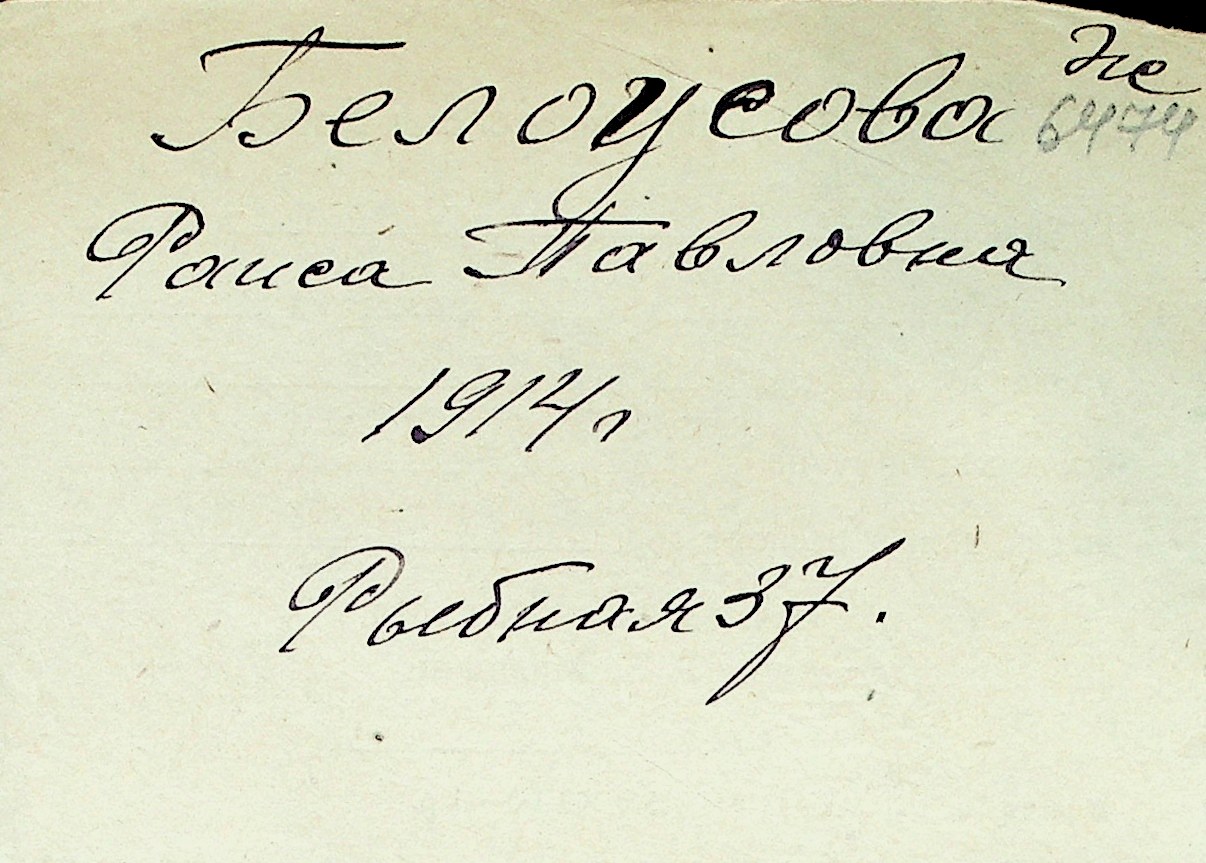 Белоусова
6474
Раиса Павловна
1914 г
Рыбная 37.